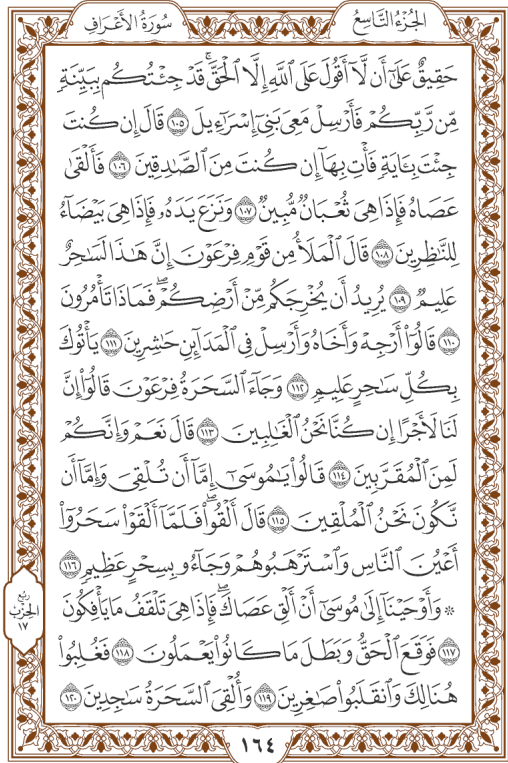 الجُزْءُ التَّاسِعُ
سُورَةُ الأَعْرَافِ
حَقِيقٌ عَلَىٰٓ أَن لَّآ أَقُولَ عَلَى ٱللَّهِ إِلَّا ٱلْحَقَّۚ قَدْ جِئْتُكُم بِبَيِّنَةٍ
مِّن رَّبِّكُمْ فَأَرْسِلْ مَعِىَ بَنِىٓ إِسْرَٰٓءِيلَ ١٠٥ قَالَ إِن كُنتَ
جِئْتَ بِـَٔايَةٍ فَأْتِ بِهَآ إِن كُنتَ مِنَ ٱلصَّٰدِقِينَ ١٠٦ فَأَلْقَىٰ
عَصَاهُ فَإِذَا هِىَ ثُعْبَانٌ مُّبِينٌ ١٠٧ وَنَزَعَ يَدَهُۥ فَإِذَا هِىَ بَيْضَآءُ
لِلنَّٰظِرِينَ ١٠٨ قَالَ ٱلْمَلَأُ مِن قَوْمِ فِرْعَوْنَ إِنَّ هَٰذَا لَسَٰحِرٌ
عَلِيمٌ ١٠٩ يُرِيدُ أَن يُخْرِجَكُم مِّنْ أَرْضِكُمْۖ فَمَاذَا تَأْمُرُونَ
١١٠ قَالُوٓا۟ أَرْجِهْ وَأَخَاهُ وَأَرْسِلْ فِى ٱلْمَدَآئِنِ حَٰشِرِينَ ١١١ يَأْتُوكَ
بِكُلِّ سَٰحِرٍ عَلِيمٍ ١١٢ وَجَآءَ ٱلسَّحَرَةُ فِرْعَوْنَ قَالُوٓا۟ إِنَّ
لَنَا لَأَجْرًا إِن كُنَّا نَحْنُ ٱلْغَٰلِبِينَ ١١٣ قَالَ نَعَمْ وَإِنَّكُمْ
لَمِنَ ٱلْمُقَرَّبِينَ ١١٤ قَالُوا۟ يَٰمُوسَىٰٓ إِمَّآ أَن تُلْقِىَ وَإِمَّآ أَن
نَّكُونَ نَحْنُ ٱلْمُلْقِينَ ١١٥ قَالَ أَلْقُوا۟ۖ فَلَمَّآ أَلْقَوْا۟ سَحَرُوٓا۟
أَعْيُنَ ٱلنَّاسِ وَٱسْتَرْهَبُوهُمْ وَجَآءُو بِسِحْرٍ عَظِيمٍ ١١٦
۞ وَأَوْحَيْنَآ إِلَىٰ مُوسَىٰٓ أَنْ أَلْقِ عَصَاكَۖ فَإِذَا هِىَ تَلْقَفُ مَا يَأْفِكُونَ
١١٧ فَوَقَعَ ٱلْحَقُّ وَبَطَلَ مَا كَانُوا۟ يَعْمَلُونَ ١١٨ فَغُلِبُوا۟
هُنَالِكَ وَٱنقَلَبُوا۟ صَٰغِرِينَ ١١٩ وَأُلْقِىَ ٱلسَّحَرَةُ سَٰجِدِينَ ١٢٠
رُبْع
الحِزْب
١٧
١٦٤